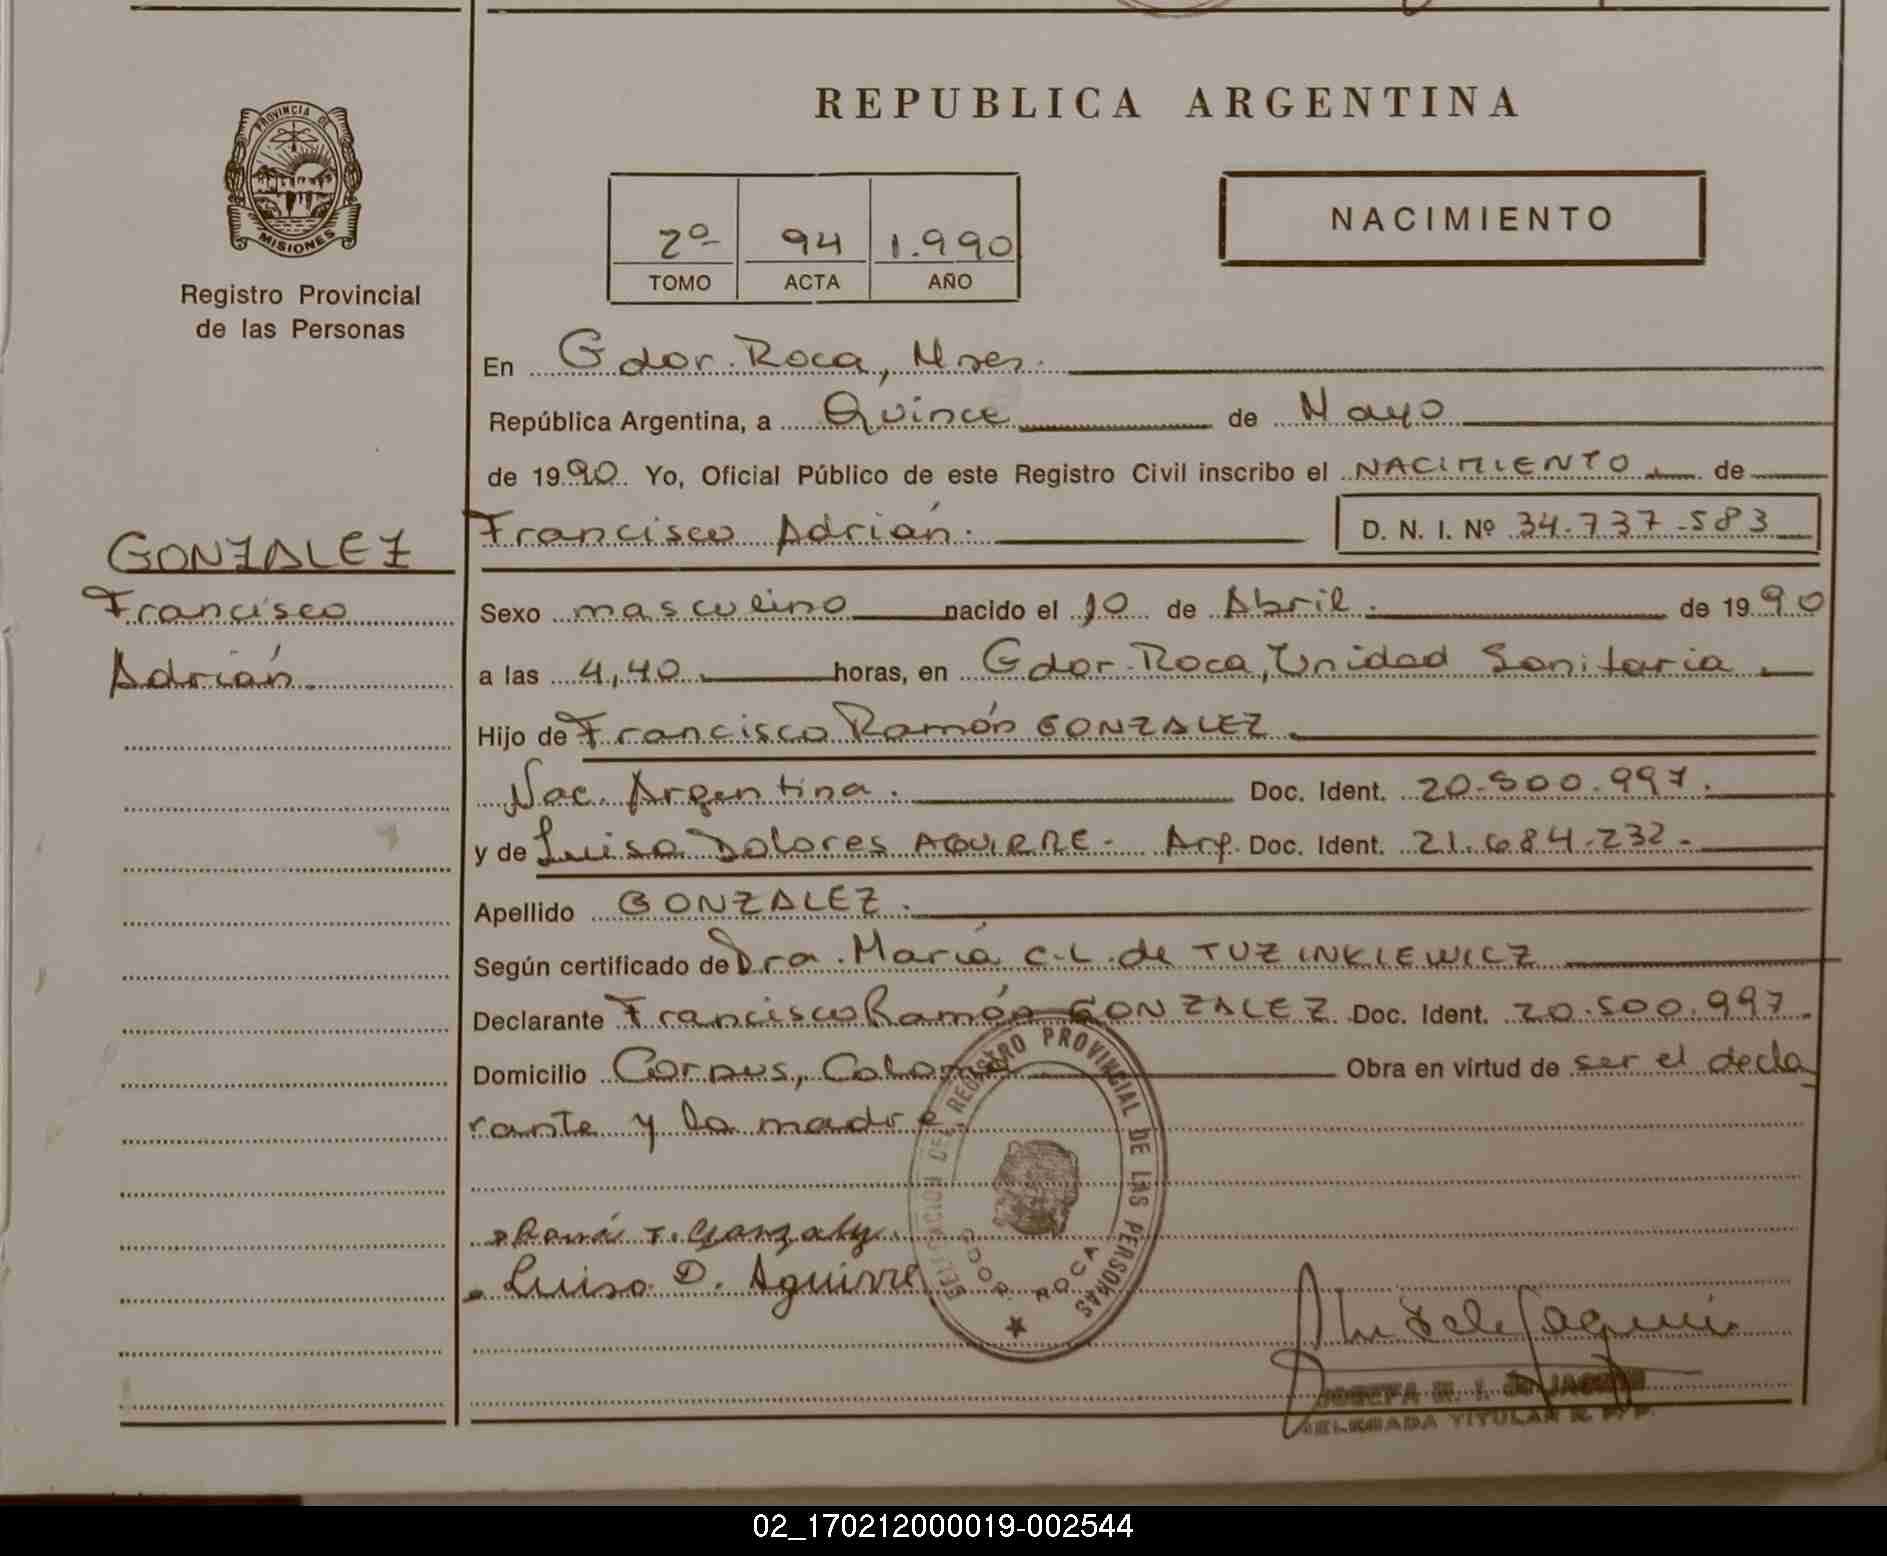 PROVINCIA DE
MISIONES
Registro Provincial
de las Personas
GONZALEZ
Francisco
Adrián.
REPUBLICA ARGENTINA
2º 94 1.990
TOMO ACTA AÑO
NACIMIENTO
En Gdor. Roca, Mnes.
República Argentina, a Quince de Mayo
de 1990 Yo, Oficial Público de este Registro Civil inscribo el NACIMIENTO de
Francisco Adrián. D. N. I. Nº 34.737.583
Sexo masculino nacido el 10 de Abril. de 1990
a las 4,40 horas, en Gdor. Roca, Unidad Sanitaria
Hijo de Francisco Ramón GONZALEZ
Nac. Argentina. Doc. Ident. 20.500.997.
y de Luisa Dolores AGUIRRE. Arg. Doc. Ident. 21.684.232.
Apellido GONZALEZ.
Según certificado de Dra. María C.L. de TUZINKIEWICZ
Declarante Francisco Ramón GONZALEZ Doc. Ident. 20.500.997.
Domicilio Corpus, Colonia Obra en virtud de ser el decla
rante y la madre.
DELEGACION DEL REGISTRO PROVINCIAL DE LAS PERSONAS
GDOR. ROCA
Luisa D. Aguirre
JOSEFA
DELEGADA TITULAR R. P. P.
02_170212000019-002544